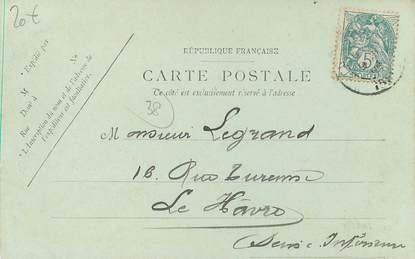 20€
RÉPUBLIQUE FRANÇAISE
CARTE POSTALE
Ce côté est exclusivement réservé à l'adresse
* Expédié par
M
Demt à
Rue
No
* L'inscription du nom et de l'adresse de
l'expéditeur est facultative.
38
5
Monsieur Legrand
18. Rue Turenne
Le Hâvre
Seine Inférieure